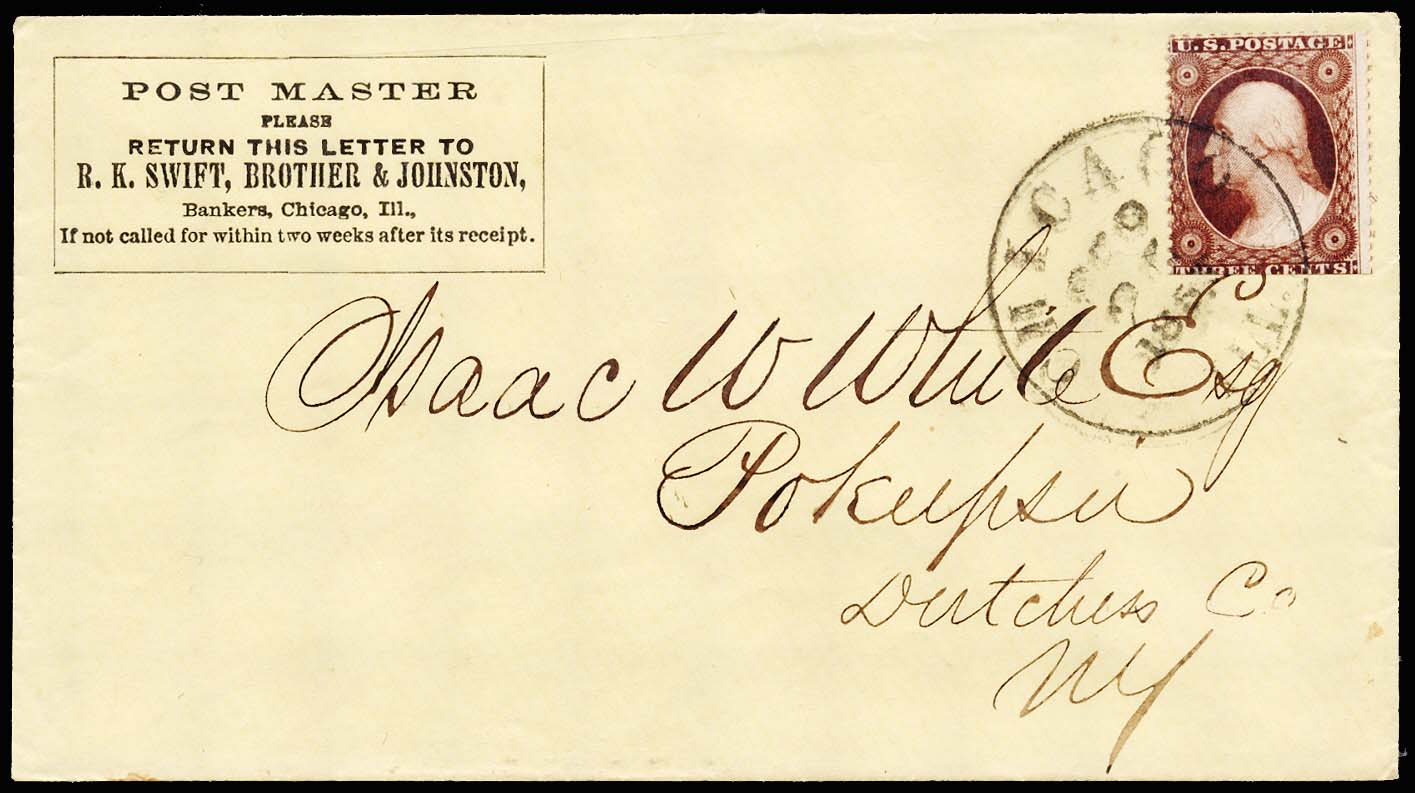 POST MASTER
PLEASE
RETURN THIS LETTER TO
R. K. SWIFT, BROTHER & JOHNSTON,
Bankers, Chicago, Ill.,
If not called for within two weeks after its receipt.
U.S. POSTAGE
THREE CENTS
CHICAGO
Isaac W White Esq
Pokeepsie
Dutchess Co
NY